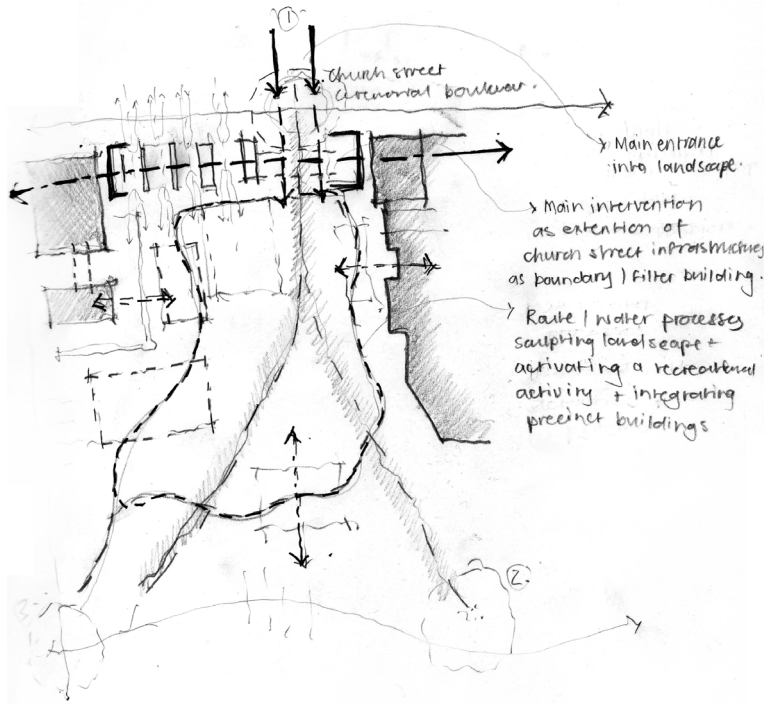 1
church street
ceremonial boulevar.
Main entrance
into landscape.
Main intervention
as extention of
church street infrastructure
as boundary / filter building.
Route / water processes
sculpting landscape +
activating a recreational
activity + integrating
precinct buildings
2.
2.
3.